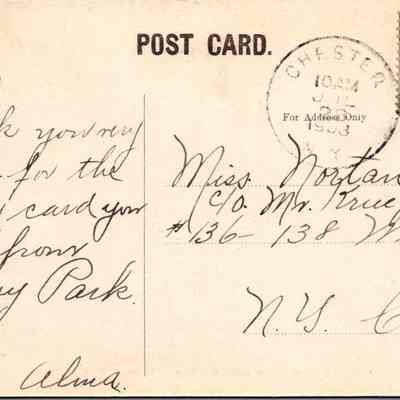 POST CARD.
CHESTER
10 AM
1908
For Address Only
k you very
for the
card you
from
ay Park.
Alma.
Miss Nortan
c/o. Mr. Krue
# 136 - 138 W
N. Y. C